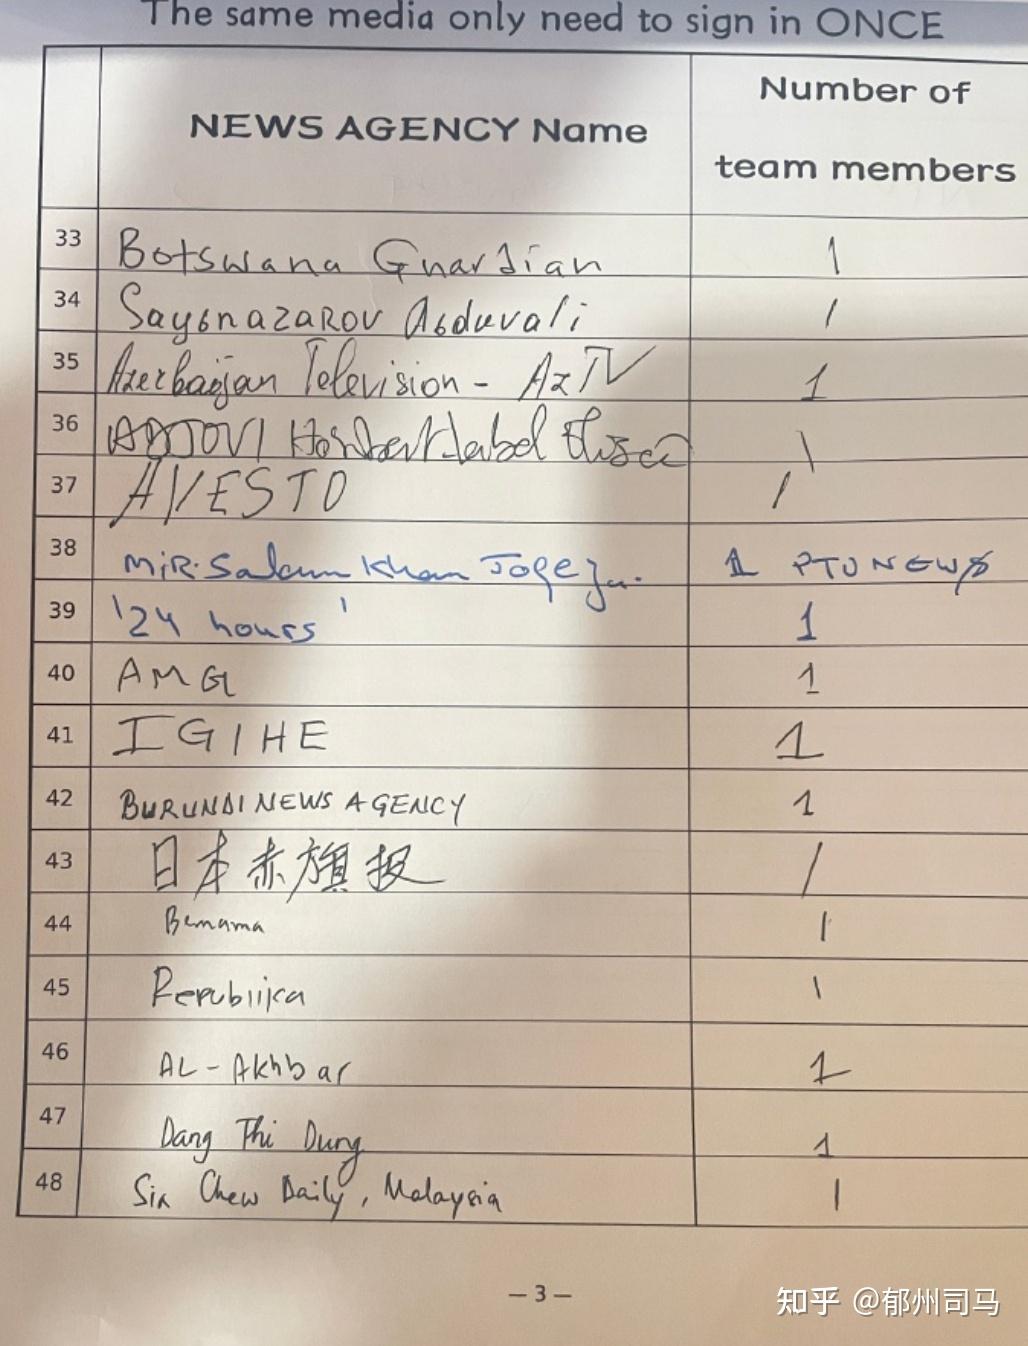 The same media only need to sign in ONCE
NEWS AGENCY Name
Number of
team members
33 Botswana Guardian 1
34 Sayfnazarov Abduvali 1
35 Azerbaijan Television - AzTV 1
36 1
37 AVESTO 1
38 MiR. Salam Khan 1 PTV NEWS
39 '24 hours' 1
40 AMG 1
41 IGIHE 1
42 BURUNDI NEWS AGENCY 1
43 日本赤旗报 1
44 Bernama 1
45 Republika 1
46 AL-Akhbar 1
47 Dang Thi Dung 1
48 Sin Chew Daily, Malaysia 1
— 3 —
知乎 @郁州司马